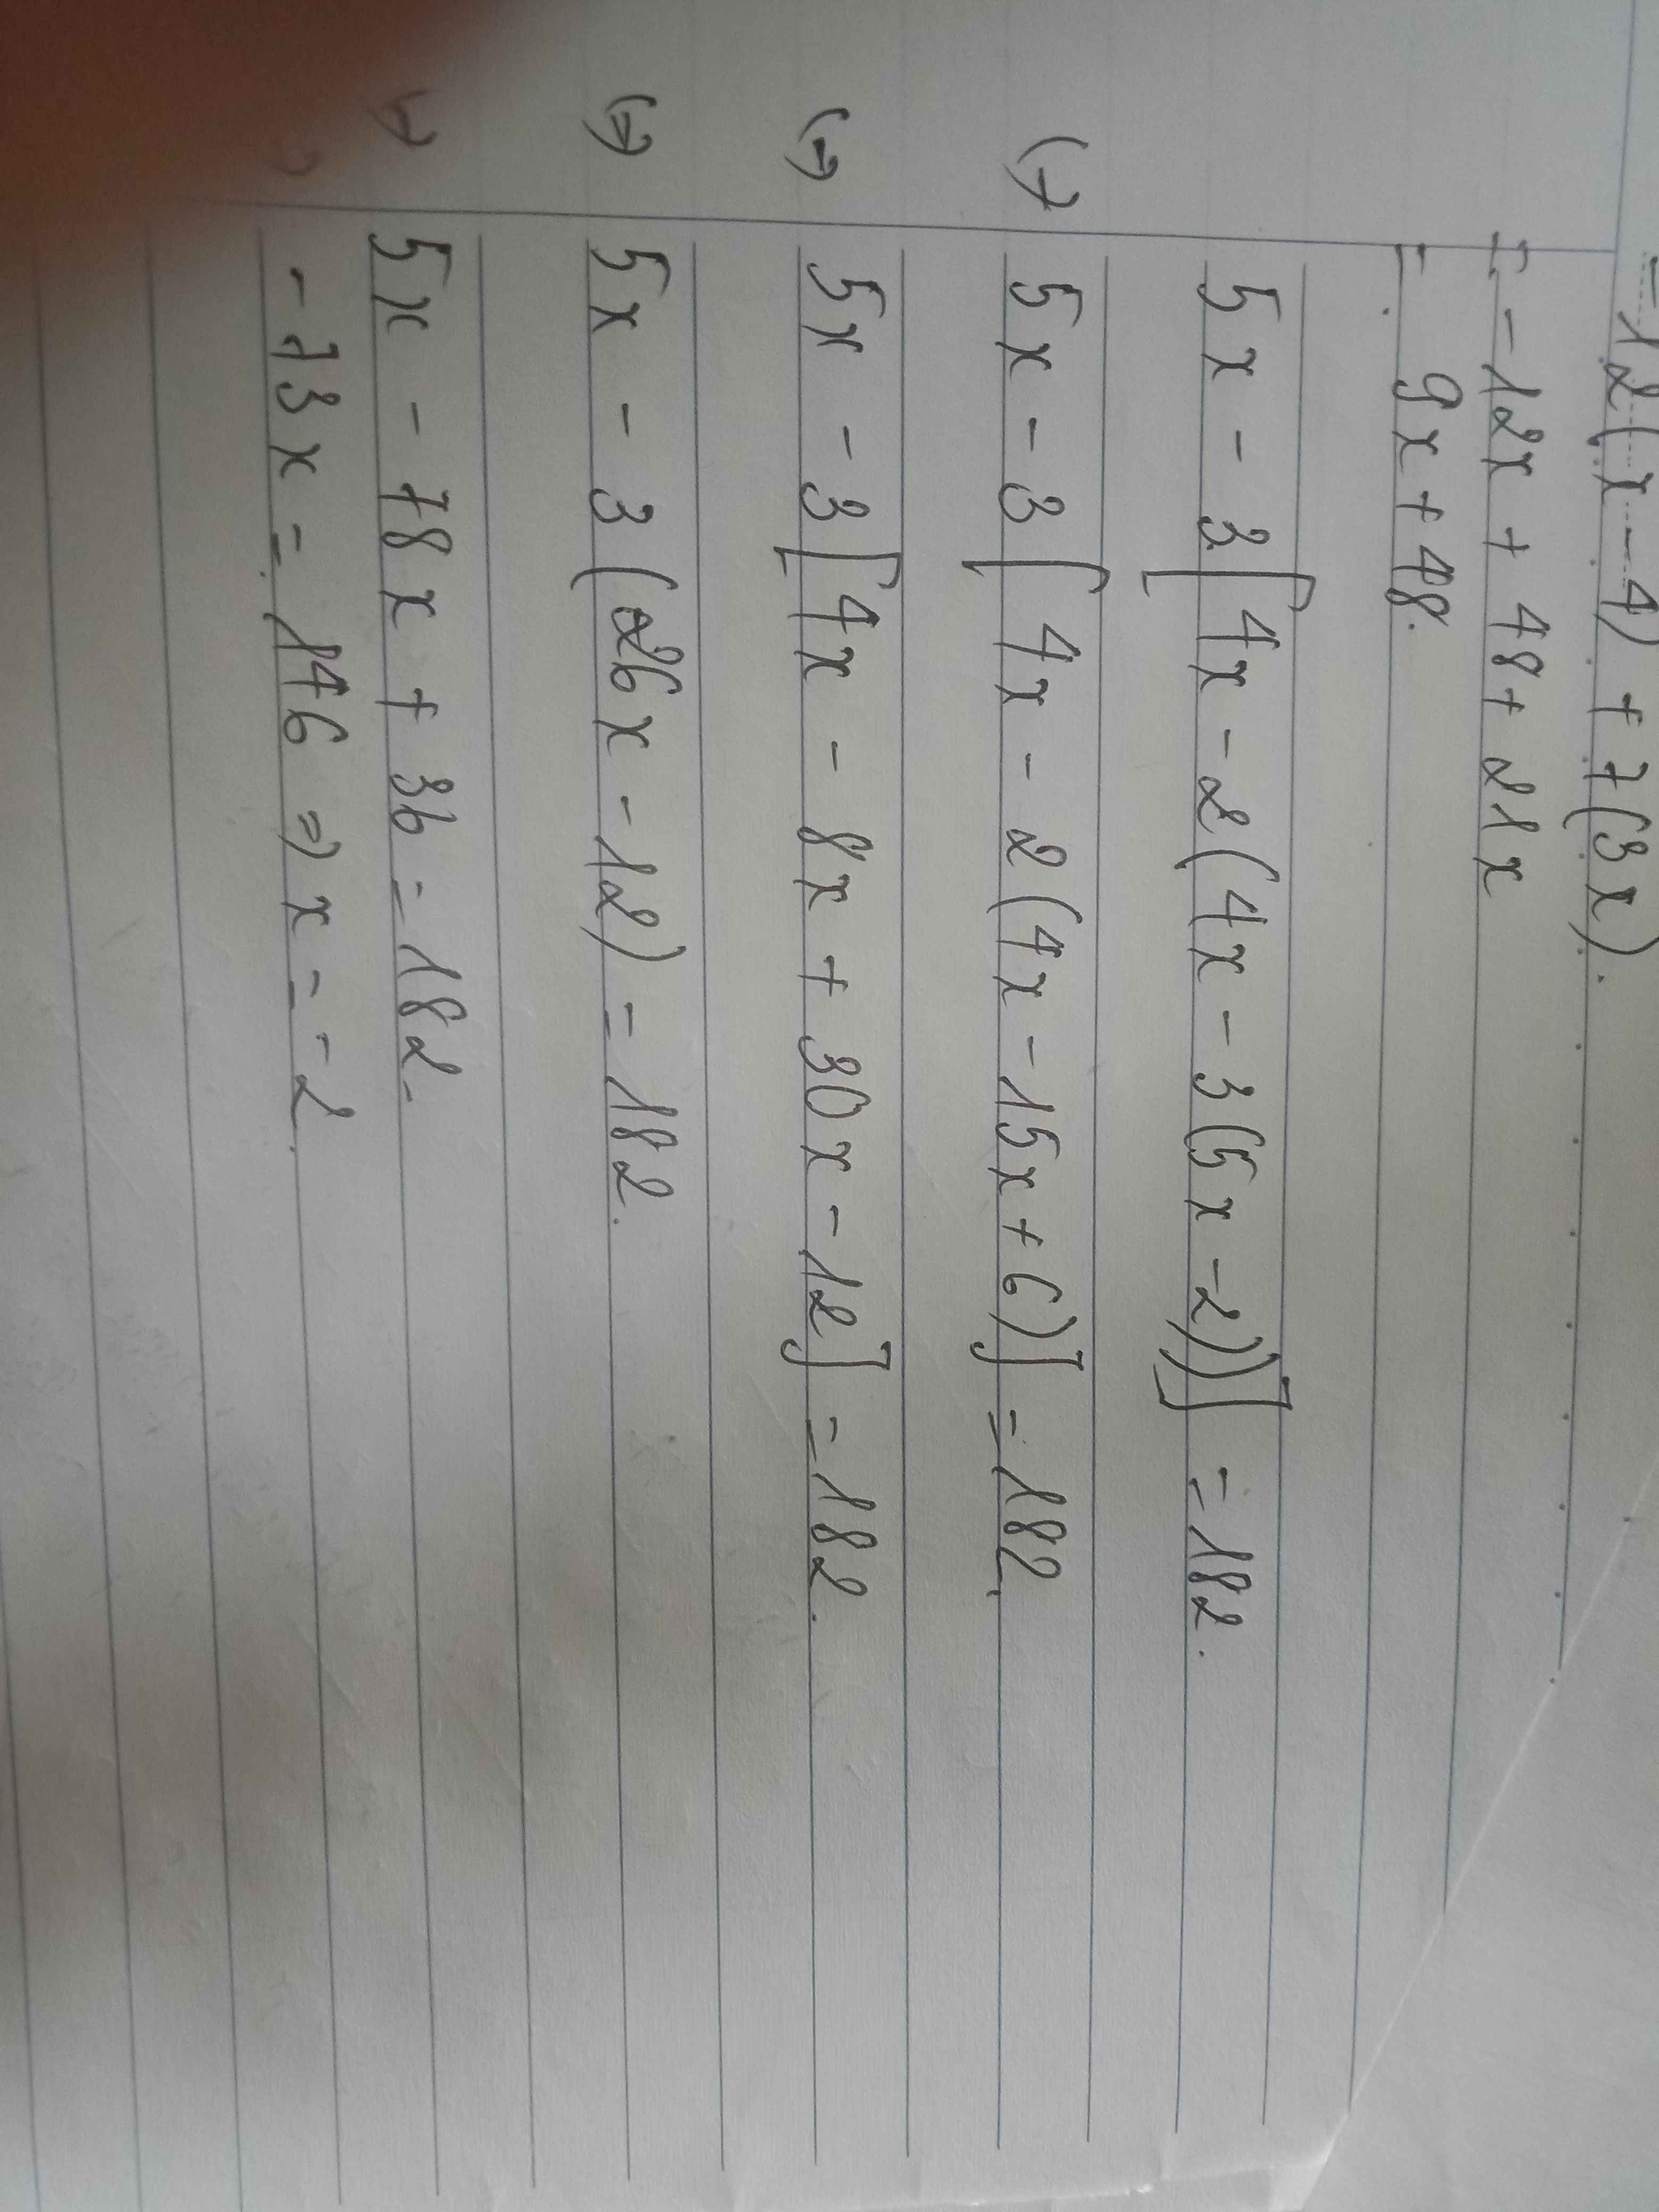 = -12(x-4) + 7(3x).
= -12x + 48 + 21x
= 9x + 48.
5x - 3[4x - 2(4x - 3(5x - 2))] = 182.
(→) 5x - 3[4x - 2(4x - 15x + 6)] = 182.
(→) 5x - 3[4x - 8x + 30x - 12] = 182.
(⇒) 5x - 3(26x - 12) = 182.
(→) 5x - 78x + 36 = 182.
- 73x = 146 ⇒ x = -2.